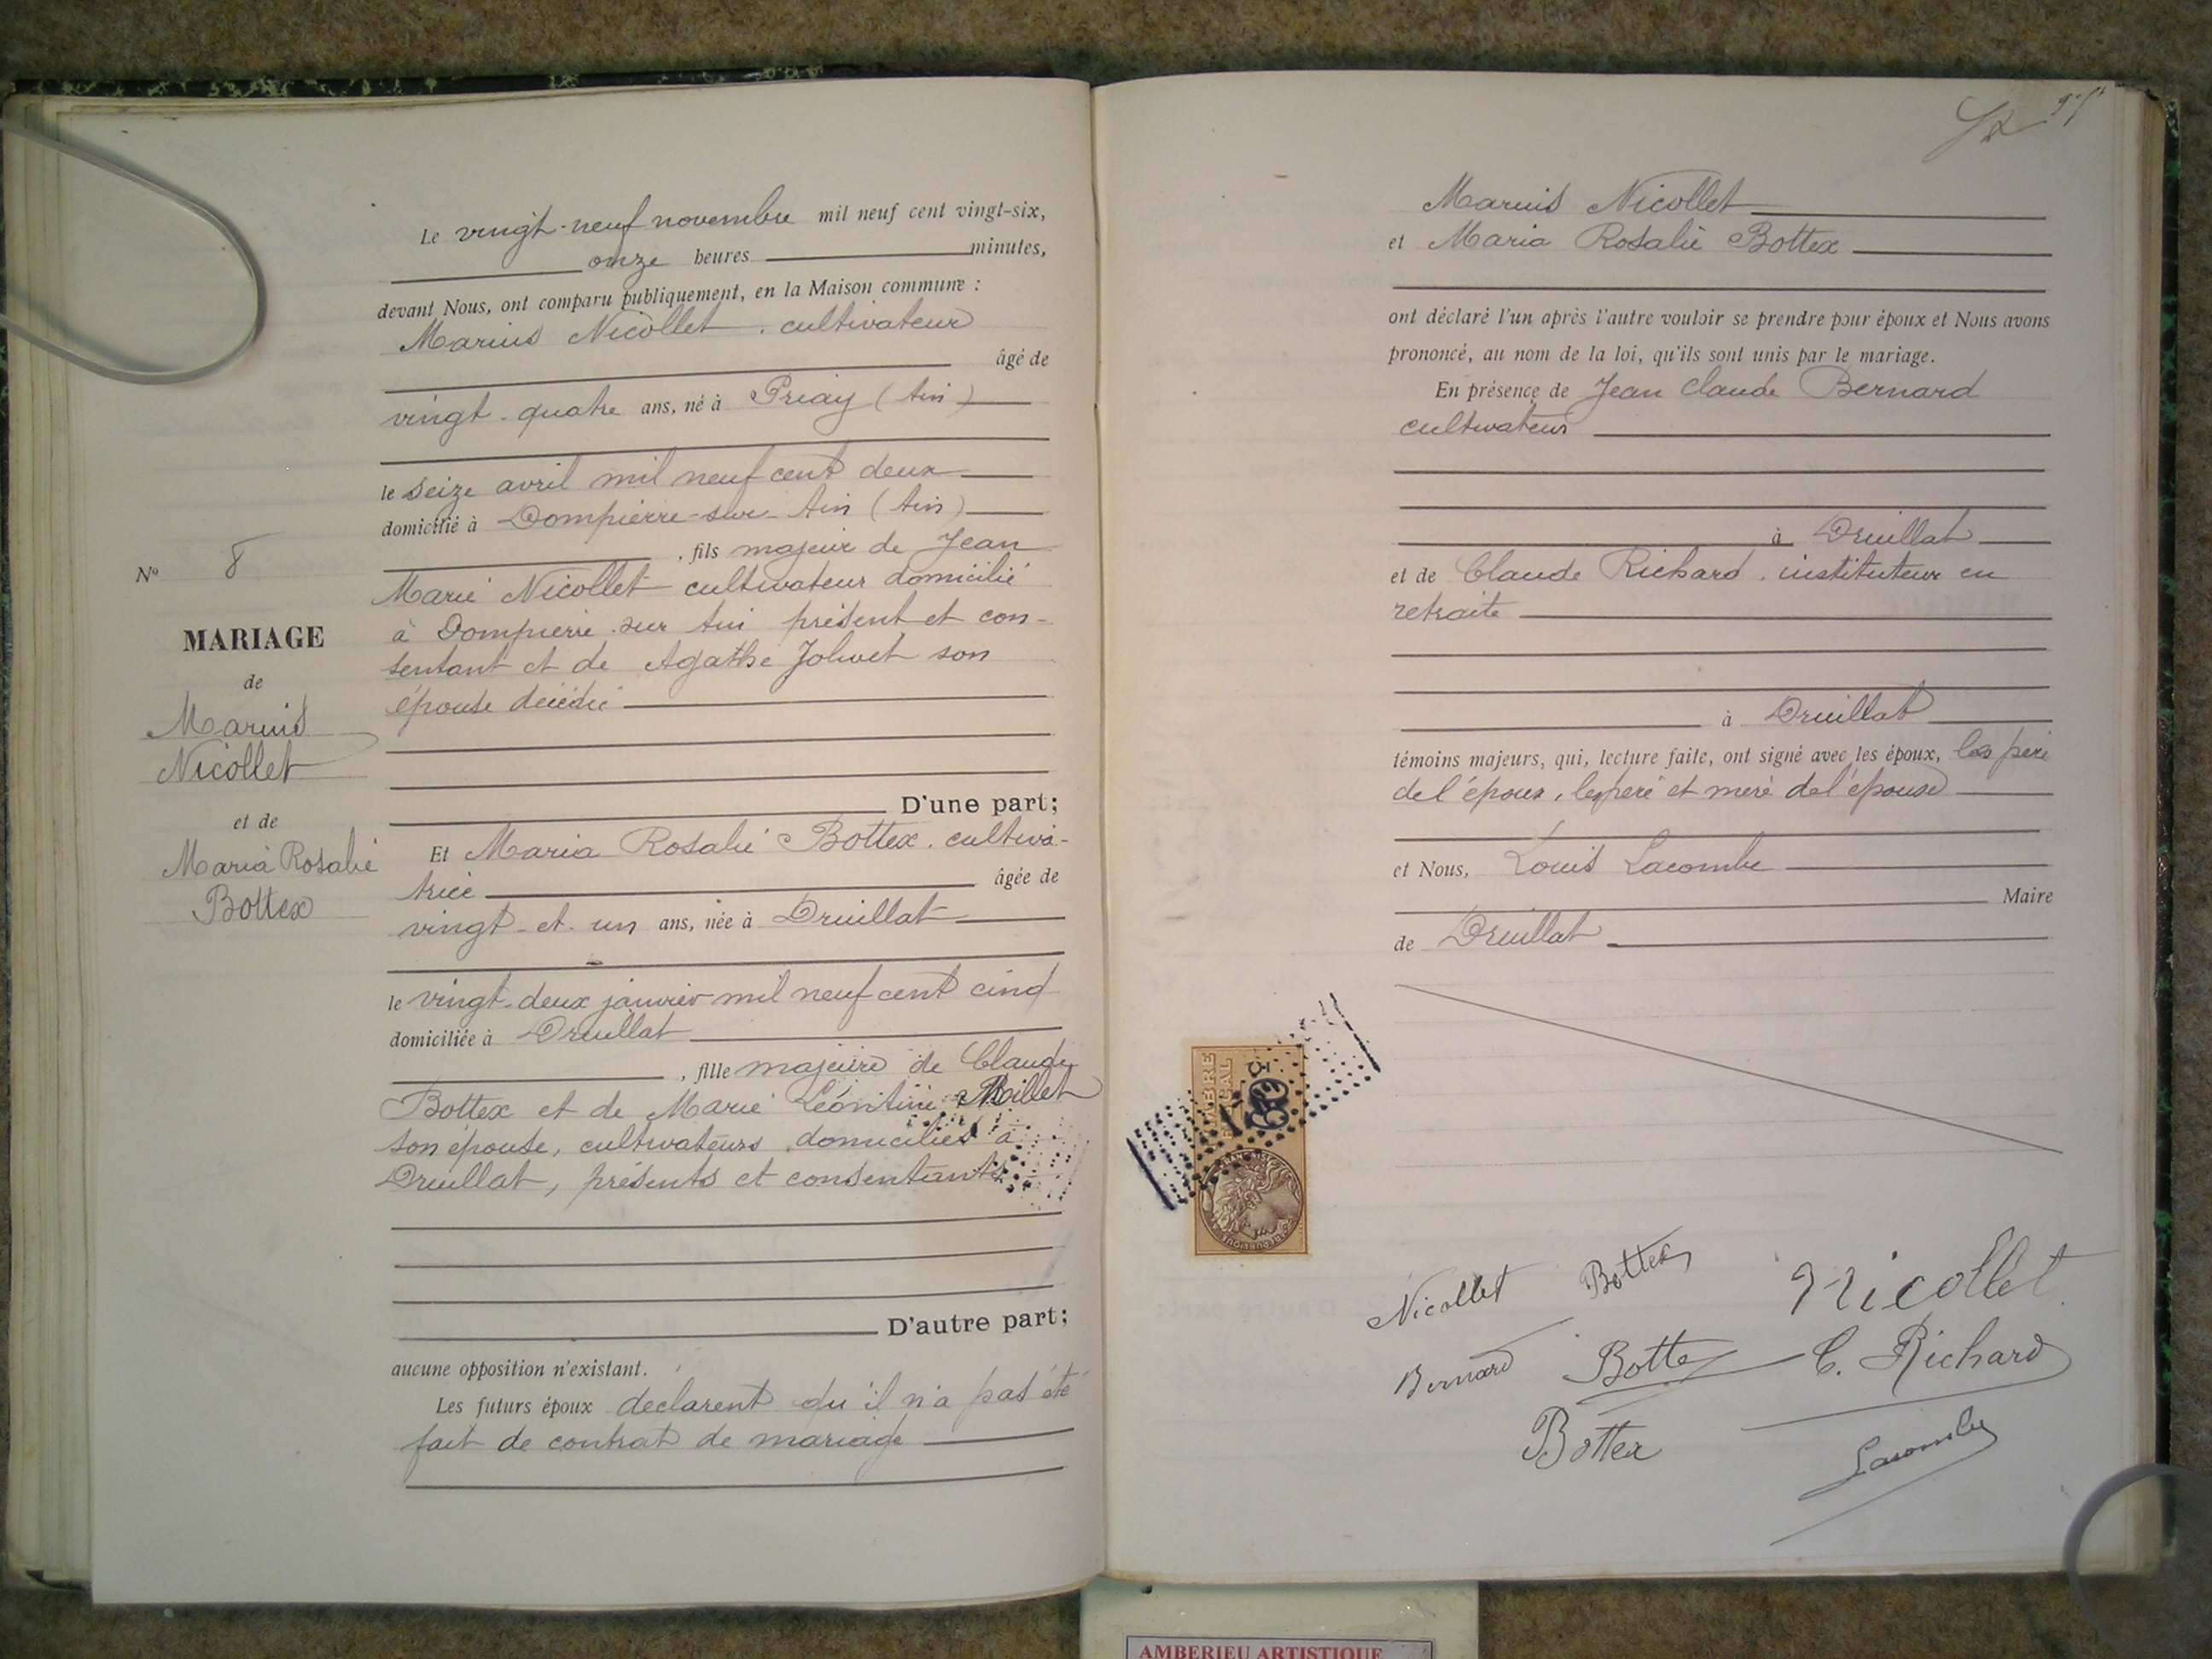 Le vingt-neuf novembre mil neuf cent vingt-six,
onze heures minutes,
devant Nous, ont comparu publiquement, en la Maison commune :
Marius Nicollet . cultivateur
âgé de
vingt-quatre ans, né à Priay (Ain)
le seize avril mil neuf cent deux
domicilié à Dompierre-sur-Ain (Ain)
, fils majeur de Jean
Marie Nicollet cultivateur domicilié
à Dompierre sur Ain présent et con-
sentant et de Agathe Jolivet son
épouse décédée
D'une part;
Et Maria Rosalie Bottex . cultiva-
trice âgée de
vingt-et-un ans, née à Druillat
le vingt-deux janvier mil neuf cent cinq
domiciliée à Druillat
, fille majeure de Claude
Bottex et de Marie Léontine Maillet
son épouse, cultivateurs domiciliés à
Druillat, présents et consentants
D'autre part;
aucune opposition n'existant.
Les futurs époux déclarent qu'il n'a pas été
fait de contrat de mariage
No 8
MARIAGE
de
Marius
Nicollet
et de
Maria Rosalie
Bottex
Marius Nicollet
et Maria Rosalie Bottex
ont déclaré l'un après l'autre vouloir se prendre pour époux et Nous avons
prononcé, au nom de la loi, qu'ils sont unis par le mariage.
En présence de Jean Claude Bernard
cultivateur
à Druillat
et de Claude Richard . instituteur en
retraite
à Druillat
témoins majeurs, qui, lecture faite, ont signé avec les époux, les père
de l'époux, les père et mère de l'épouse
et Nous, Louis Lacombe
Maire
de Druillat
TIMBRE
FISCAL
60
Nicollet Bottex Nicollet
Bernard Bottex C. Richard
Bottex Lacombe
AMBERIEU ARTISTIQUE